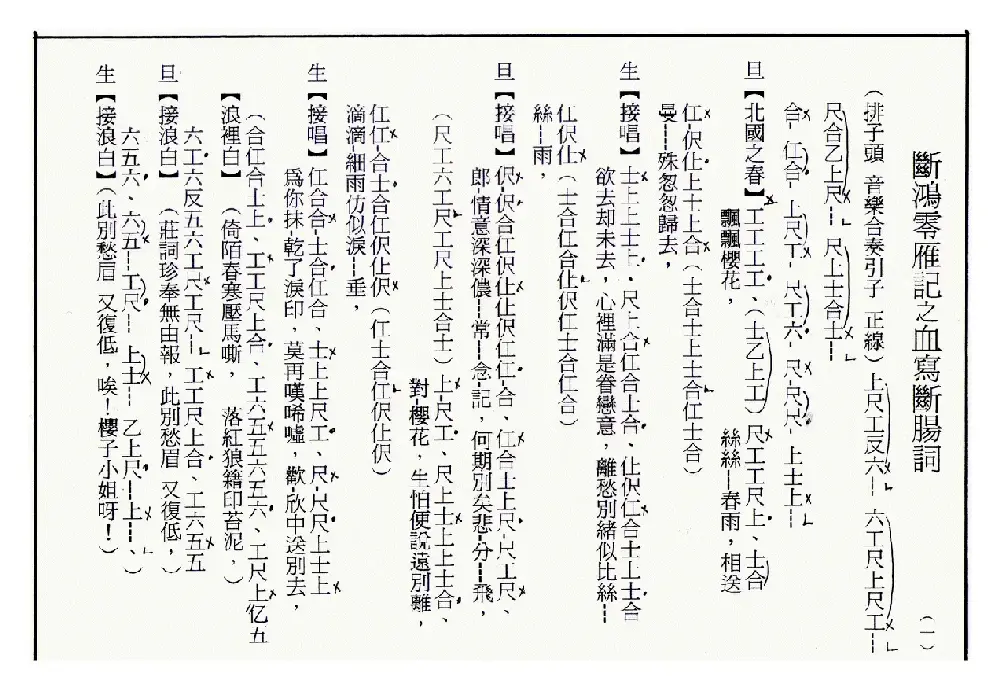 斷鴻零雁記之血寫斷腸詞 (一)
(排子頭 音樂合奏引子 正線) 上尺工反六 六工尺上尺工
尺合乙上尺 尺上士合士
合 仜合 上尺工 尺工六 尺尺尺 上士上
旦【北國之春】工工工工、(士乙上工) 尺工工尺上、士合
飄飄櫻花, 絲絲 春雨,相送
仜 伬仩上士上合 (士合士上士合仜士合)
曼 殊怱怱歸去,
生【接唱】士上上士上、尺上合仜合上合、仩伬仜合士上士合
欲去却未去,心裡滿是眷戀意,離愁別緒似比絲
仜伬仩 (士合仜合仩伬仜士合仜合)
絲 雨,
旦【接唱】伬 伬合仜伬仩仩伬仜仜 合、仜合士上尺 尺工尺、
郎 情意深深儂 常 念 記,何期別矣悲 分 飛,
(尺工六工尺工尺上士合士) 上 尺工、尺上士上上士合、
對 櫻花,生怕便說遠別離,
仜仜 合士合仜伬仩伬 (仜士合仜伬仩伬)
滴滴 細雨仿似淚 垂,
生【接唱】仜合合 士合仜合、士上上尺工、尺 尺尺上士上
爲你抹 乾了淚印,莫再嘆唏噓,歡 欣中送別去,
(合仜合士上、工工尺上合、工六五五六五六、工尺上亿五
【浪裡白】(倚陌春寒壓馬嘶, 落紅狼籍印苔泥,)
六工六反五六工尺工尺 工工尺上合、工六五五
旦【接浪白】(莊詞珍奉無由報,此別愁眉 又復低,)
六五六、六五 工尺 上士 乙上尺 上
生【接浪白】(此別愁眉 又復低,唉!櫻子小姐呀!)